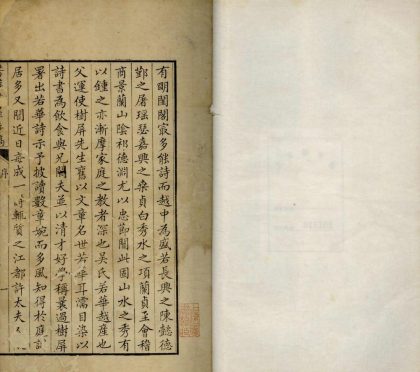 有明閨閣最多能詩而越中為盛若長興之陳懿德
鄞之屠瑶瑟嘉興之桑貞白秀水之項蘭貞至會稽
商景蘭山陰祁德淵尤以忠節聞此固山水之秀有
以鍾之亦漸摩家庭之教者深也吳氏若華越產也
父運使樹屏先生舊以文章名世若華耳濡目染以
詩書為飲食與兄 夫並以清才好學稱曩過樹屏
署出若華詩示予披讀數章婉而多風知得於庭訓
居多又聞近日每成一 輒質之江都許太夫人
序
一